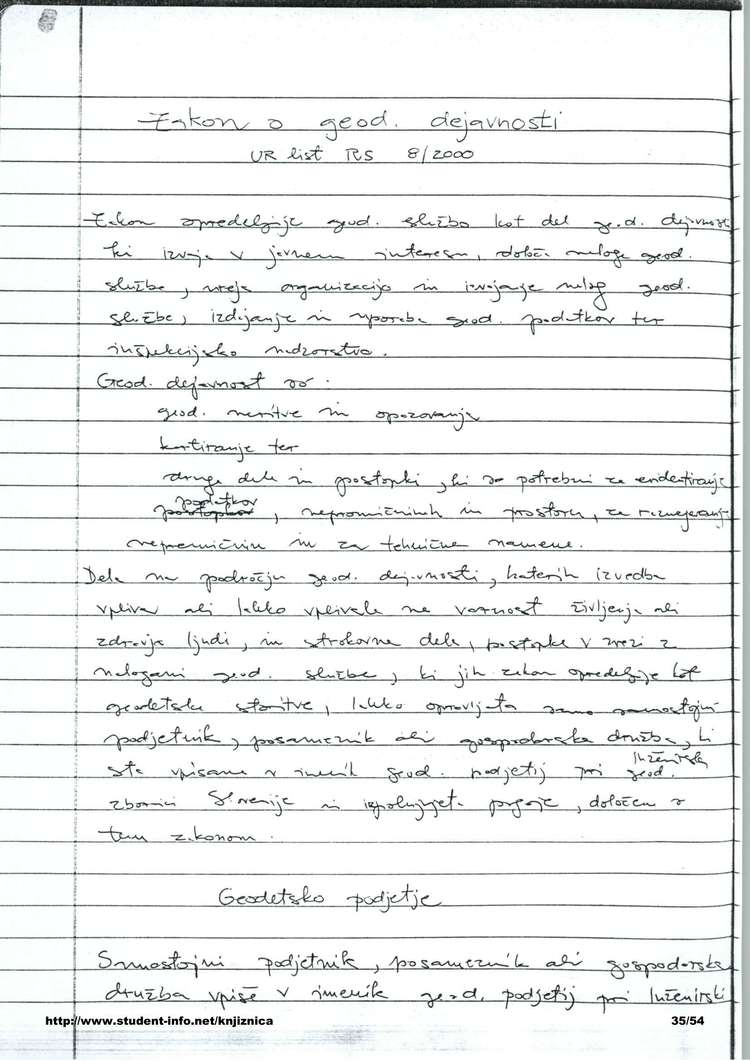 Zakon o geod. dejavnosti
UR list RS 8/2000
Zakon opredeljuje geod. službo kot del geod. dejavnosti
ki izvaja v javnem interesu, določa naloge geod.
službe, ureja organizacijo in izvajanje nalog geod.
službe, izdajanje in uporabo geod. podatkov ter
inšpekcijsko nadzorstvo.
Geod. dejavnost so:
geod. meritve in opazovanja
kartiranje ter
druga dela in postopki, ki so potrebni za evidentiranje
podatkov
, nepremičninah in prostoru, za razmejevanje
nepremičnin in za tehnične namene.
Dela na področju geod. dejavnosti, katerih izvedba
vpliva ali lahko vplivala na varnost življenja ali
zdravja ljudi, in strokovna dela, postopke v zvezi z
nalogami geod. službe, ki jih zakon opredeljuje kot
geodetske storitve, lahko opravljata samo samostojni
podjetnik, posameznik ali gospodarska družba, ki
sta vpisana v imenik geod. podjetij pri Inženirski
geod.
zbornici Slovenije in izpolnjujeta pogoje, določene s
tem zakonom.
Geodetsko podjetje
Samostojni podjetnik, posameznik ali gospodarska
družba vpiše v imenik geod. podjetij pri Inženirski
http://www.student-info.net/knjiznica 35/54